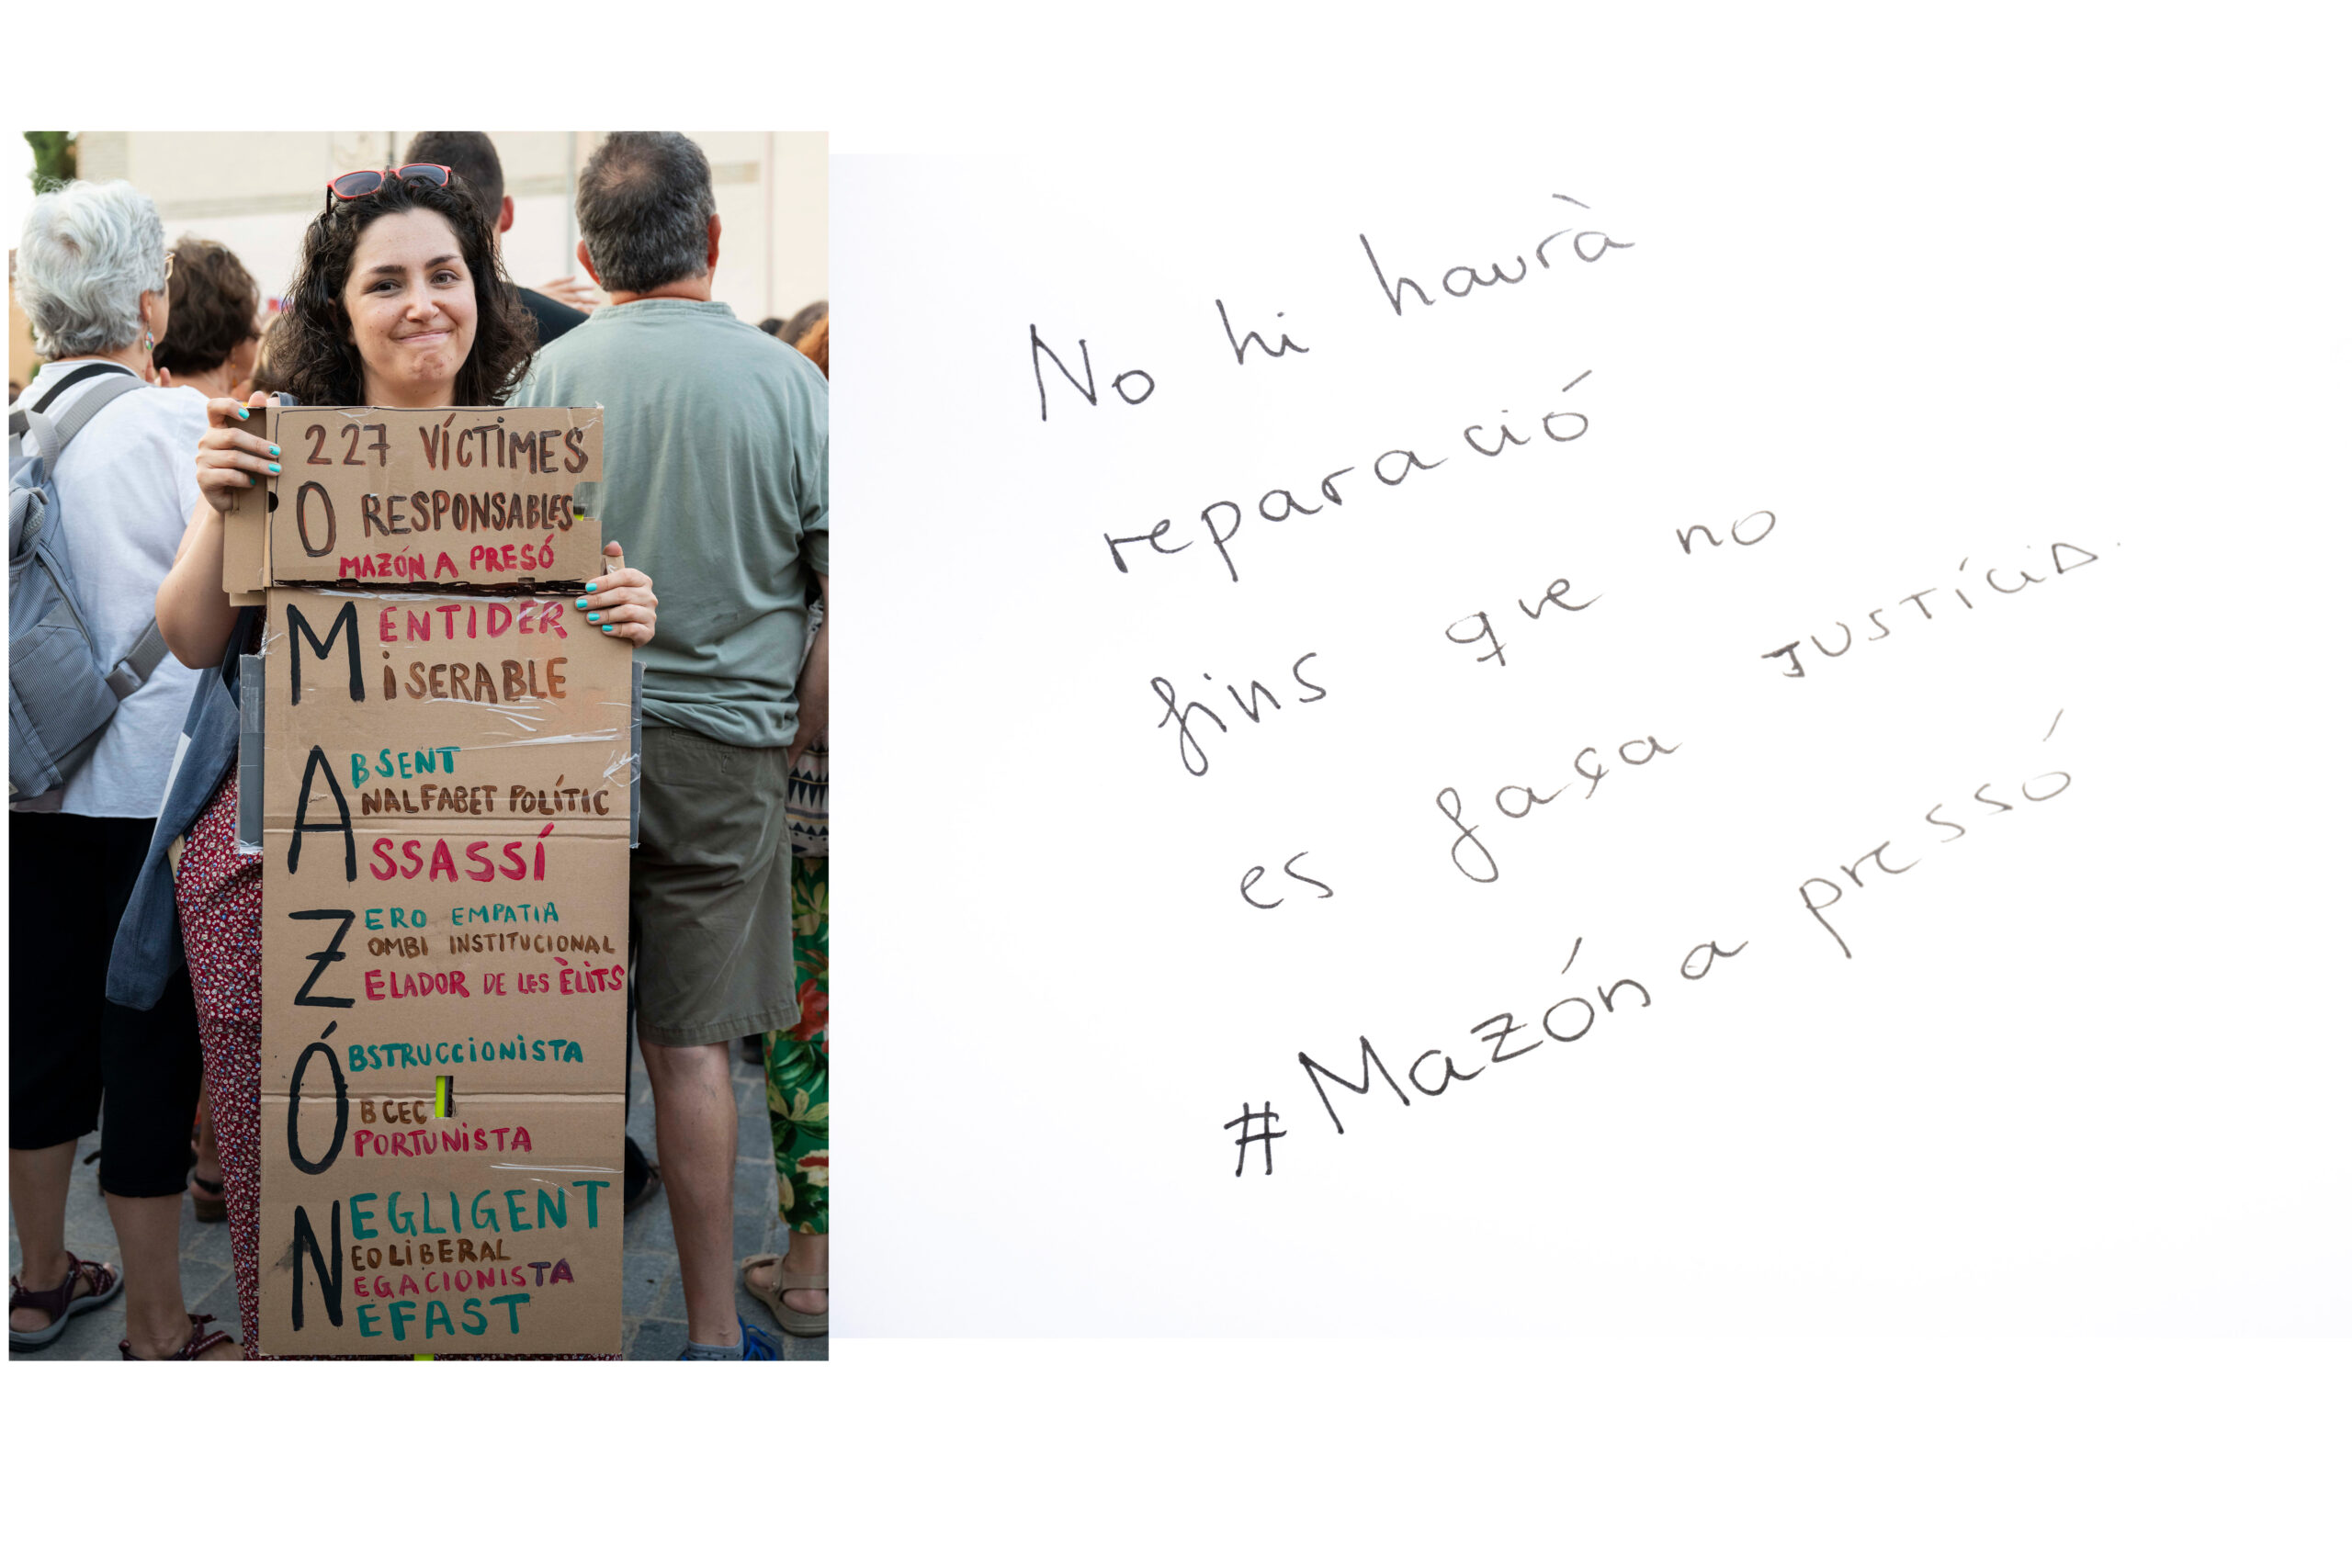 227 VÍCTIMES
0 RESPONSABLES
MAZÓN A PRESÓ
MENTIDER
MISERABLE
ABSENT
ANALFABET POLÍTIC
ASSASSÍ
ZERO EMPATIA
ZOMBI INSTITUCIONAL
ZELADOR DE LES ÈLITS
ÓBSTRUCCIONISTA
ÓBCEC
ÓPORTUNISTA
NEGLIGENT
NEOLIBERAL
NEGACIONISTA
NEFAST
No hi haurà
reparació
fins que no
es faça JUSTÍCIA.
#Mazón a pressó